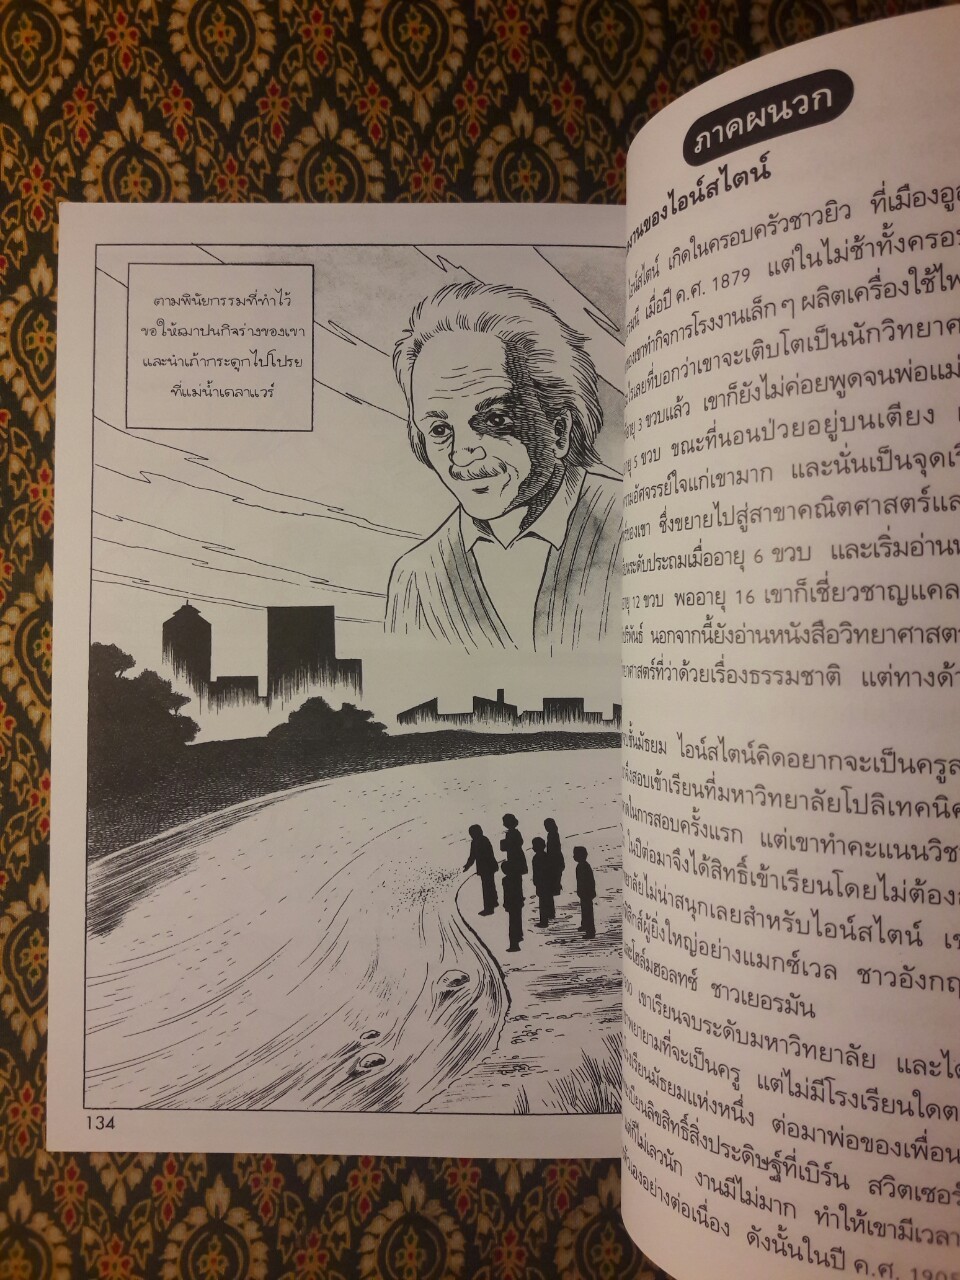 ตามพินัยกรรมที่ทำไว้
ขอให้ฌาปนกิจร่างของเขา
และนำเถ้ากระดูกไปโปรย
ที่แม่น้ำเดลาแวร์
134
ภาคผนวก
งานของไอน์สไตน์
ไอน์สไตน์ เกิดในครอบครัวชาวยิว ที่เมืองอูล
เมื่อปี ค.ศ. 1879 แต่ในไม่ช้าทั้งครอบ
ของเขาทำกิจการโรงงานเล็ก ๆ ผลิตเครื่องใช้ไฟ
ไรเลยที่บอกว่าเขาจะเติบโตเป็นนักวิทยาศ
อายุ 3 ขวบแล้ว เขาก็ยังไม่ค่อยพูดจนพ่อแม่
อายุ 5 ขวบ ขณะที่นอนป่วยอยู่บนเตียง
ความอัศจรรย์ใจแก่เขามาก และนั่นเป็นจุดเริ
ของเขา ซึ่งขยายไปสู่สาขาคณิตศาสตร์แล
ระดับประถมเมื่ออายุ 6 ขวบ และเริ่มอ่าน
อายุ 12 ขวบ พออายุ 16 เขาก็เชี่ยวชาญแคล
นอกจากนี้ยังอ่านหนังสือวิทยาศาสต
ยาศาสตร์ที่ว่าด้วยเรื่องธรรมชาติ แต่ทางด้า
ชั้นมัธยม ไอน์สไตน์คิดอยากจะเป็นครูส
จึงสอบเข้าเรียนที่มหาวิทยาลัยโปลิเทคนิค
ในการสอบครั้งแรก แต่เขาทำคะแนนวิช
ในปีต่อมาจึงได้สิทธิ์เข้าเรียนโดยไม่ต้อง
ยาลัยไม่น่าสนุกเลยสำหรับไอน์สไตน์ เข
ฟิสิกส์ผู้ยิ่งใหญ่อย่างแมกซ์เวล ชาวอังกฤ
และเฮล์มฮอลทซ์ ชาวเยอรมัน
เขาเรียนจบระดับมหาวิทยาลัย และได
พยายามที่จะเป็นครู แต่ไม่มีโรงเรียนใดต
โรงเรียนมัธยมแห่งหนึ่ง ต่อมาพ่อของเพื่อน
ทะเบียนลิขสิทธิ์สิ่งประดิษฐ์ที่เบิร์น สวิตเซอร์
ก็ไม่เลวนัก งานมีไม่มาก ทำให้เขามีเวลา
ตัวเองอย่างต่อเนื่อง ดังนั้นในปี ค.ศ. 1905